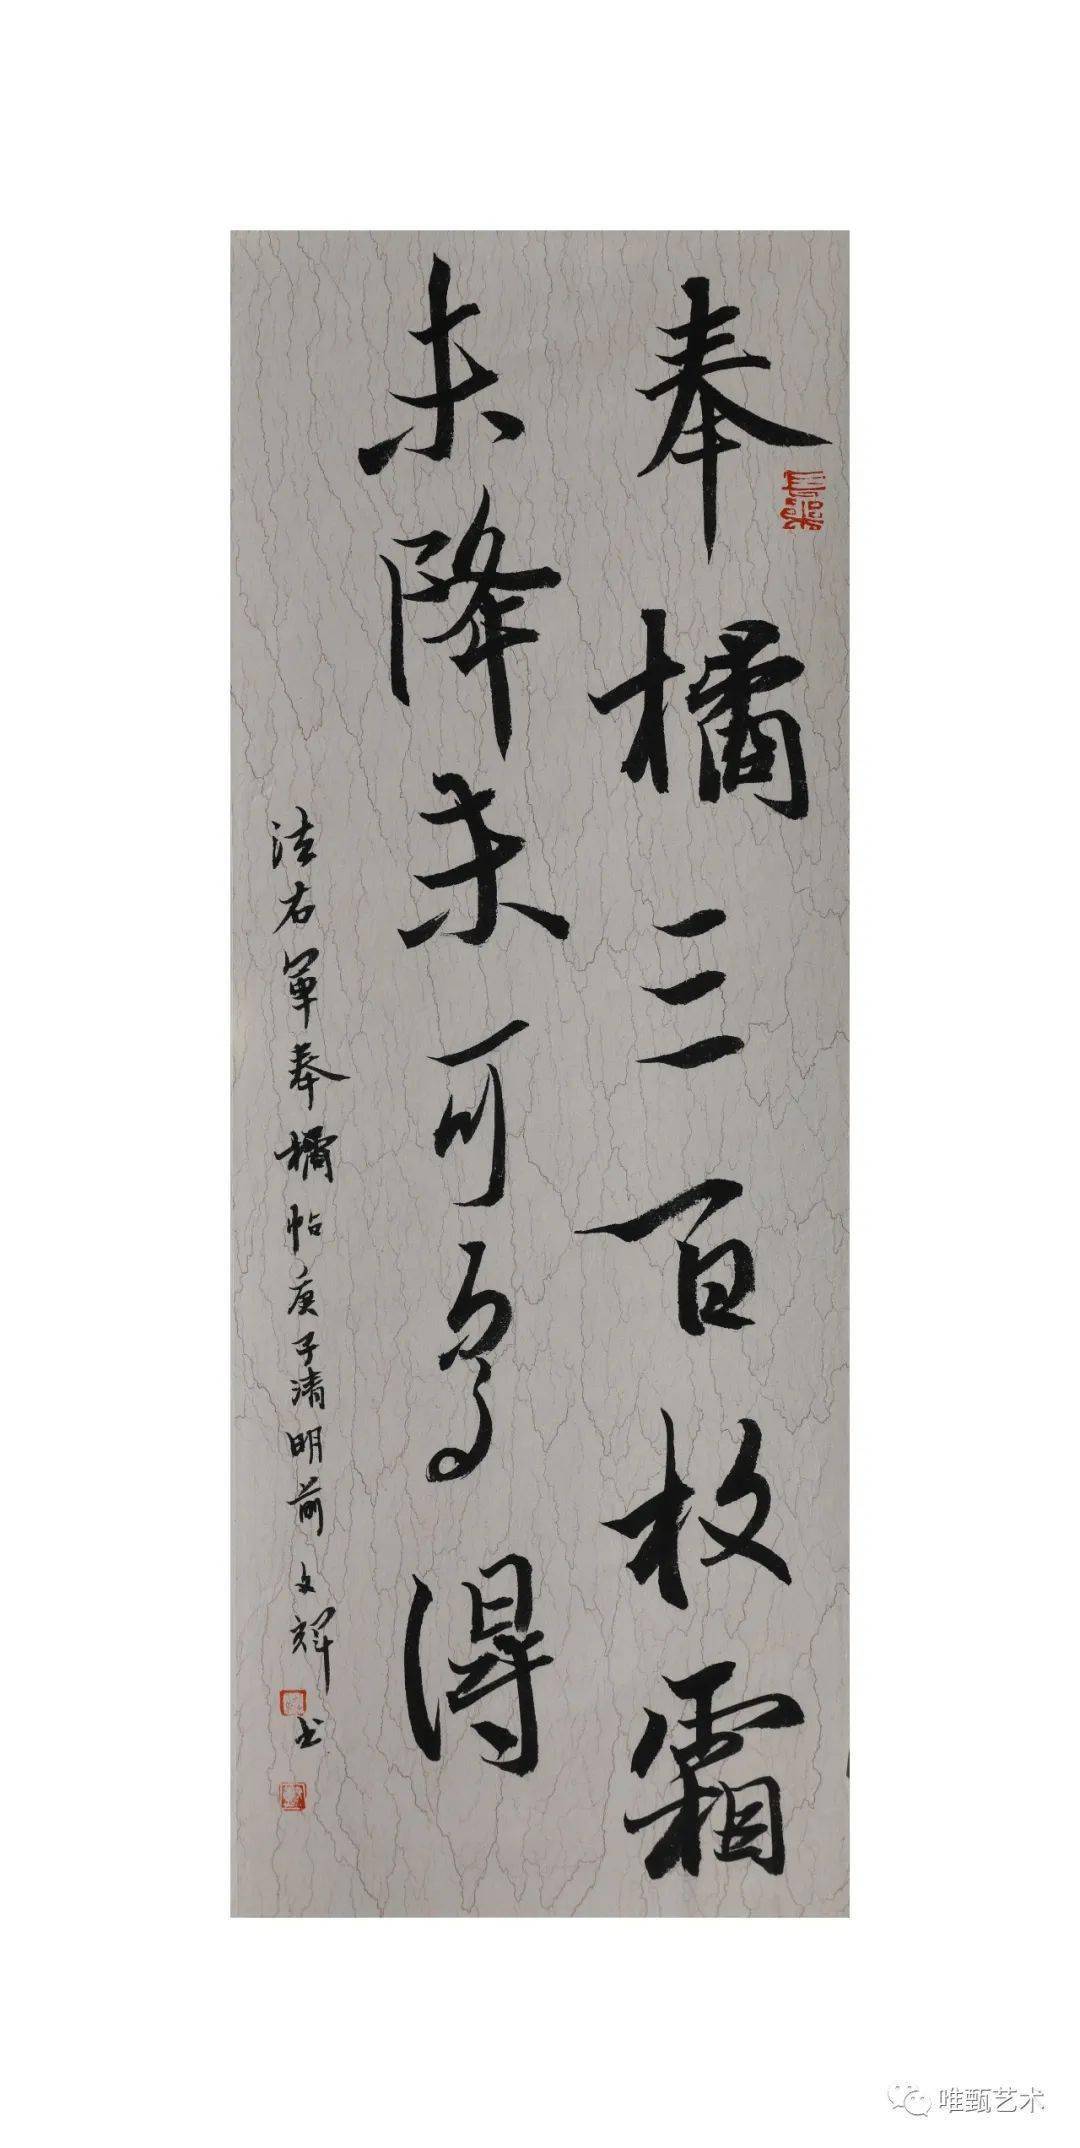 奉橘三百枚霜
未降未可多得
法右軍奉橘帖庚子清明前文輝书
唯甄艺术